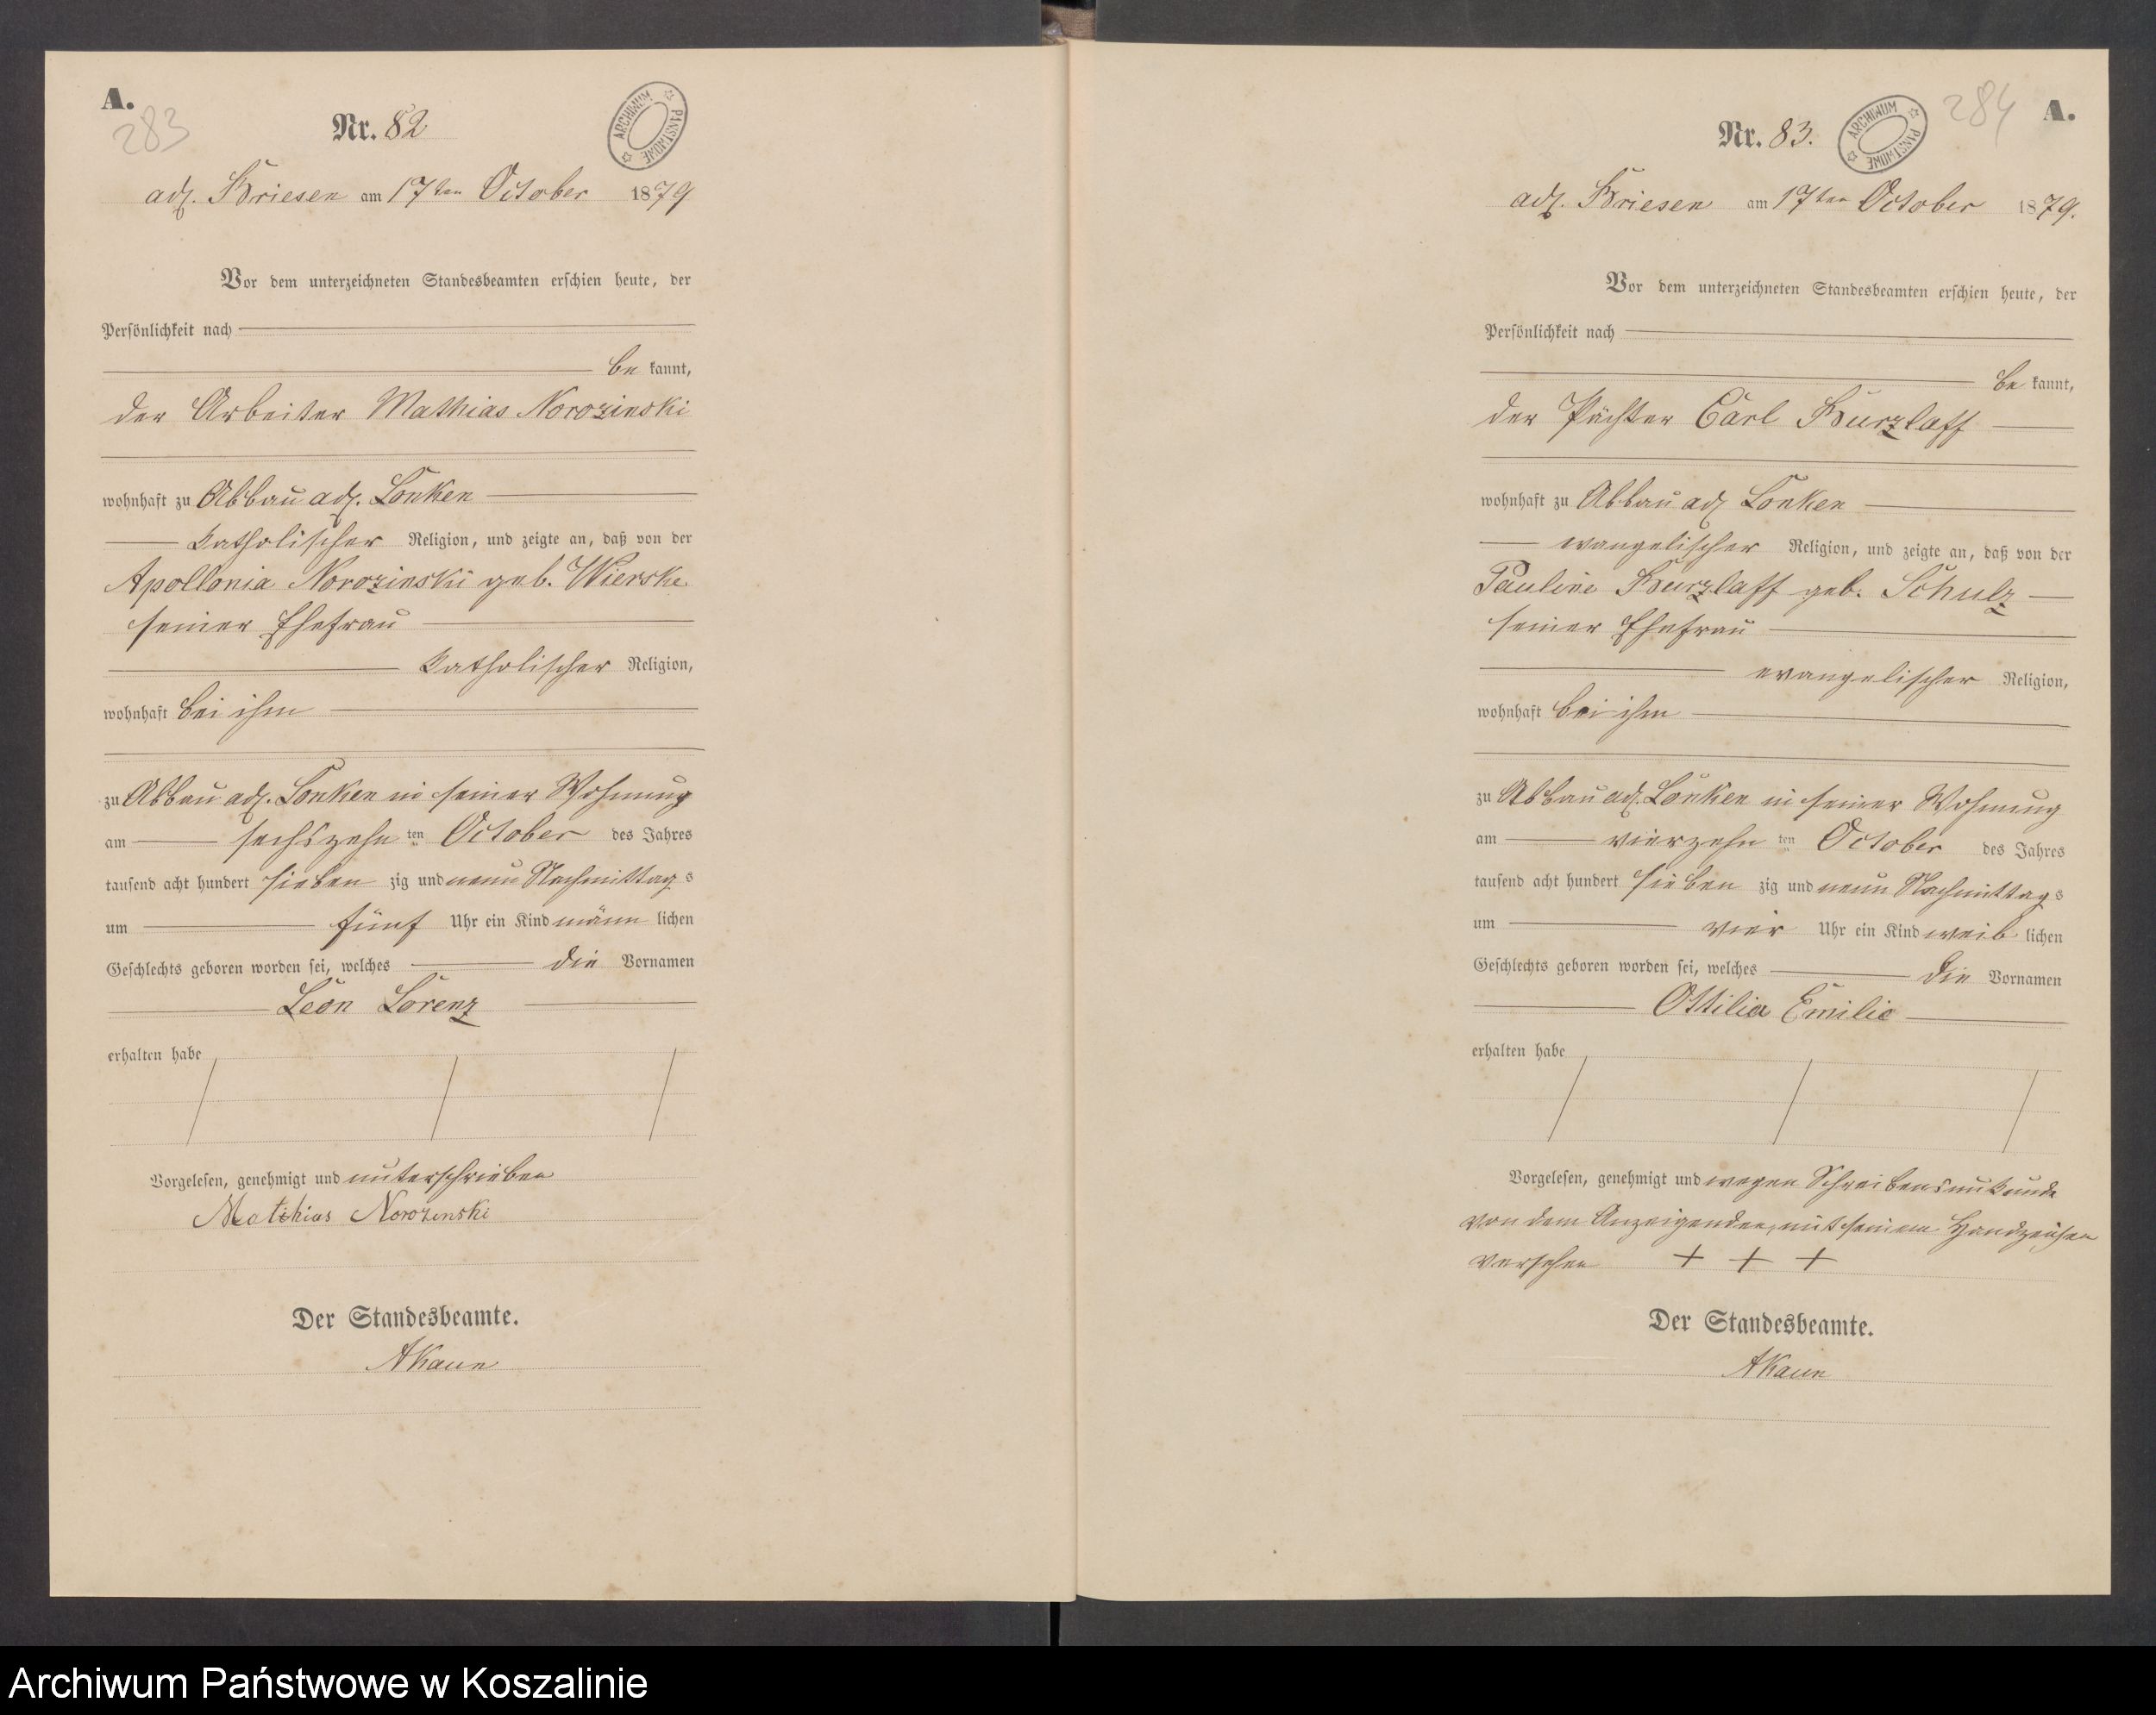 A.
283
Nr. 82
ARCHIWUM PAŃSTWOWE
adl. Briesen am 17ten October 1879
Vor dem unterzeichneten Standesbeamten erschien heute, der
Persönlichkeit nach
be kannt,
der Arbeiter Mathias Norozinski
wohnhaft zu Abbau adl. Lonken
katholischer Religion, und zeigte an, daß von der
Apollonia Norozinski geb. Wierske
seiner Ehefrau
katholischer Religion,
wohnhaft bei ihm
zu Abbau adl. Lonken in seiner Wohnung
am sechszehn ten October des Jahres
tausend acht hundert sieben zig und neun Nachmittag s
um fünf Uhr ein Kind männ lichen
Geschlechts geboren worden sei, welches die Vornamen
Leon Lorenz
erhalten habe
Vorgelesen, genehmigt und unterschrieben
Mathias Norozinski
Der Standesbeamte.
AKaun
284
A.
Nr. 83.
ARCHIWUM PAŃSTWOWE
adl. Briesen am 17ten October 1879.
Vor dem unterzeichneten Standesbeamten erschien heute, der
Persönlichkeit nach
be kannt,
der Pächter Carl Kurzlaff
wohnhaft zu Abbau adl Lonken
evangelischer Religion, und zeigte an, daß von der
Pauline Kurzlaff geb. Schulz
seiner Ehefrau
evangelischer Religion,
wohnhaft bei ihm
zu Abbau adl. Lonken in seiner Wohnung
am vierzehn ten October des Jahres
tausend acht hundert sieben zig und neun Nachmittag s
um vier Uhr ein Kind weib lichen
Geschlechts geboren worden sei, welches die Vornamen
Ottilia Emilie
erhalten habe
Vorgelesen, genehmigt und wegen Schreibensunkunde
von dem Anzeigenden, mit seinem Handzeichen
versehen + + +
Der Standesbeamte.
AKaun
Archiwum Państwowe w Koszalinie